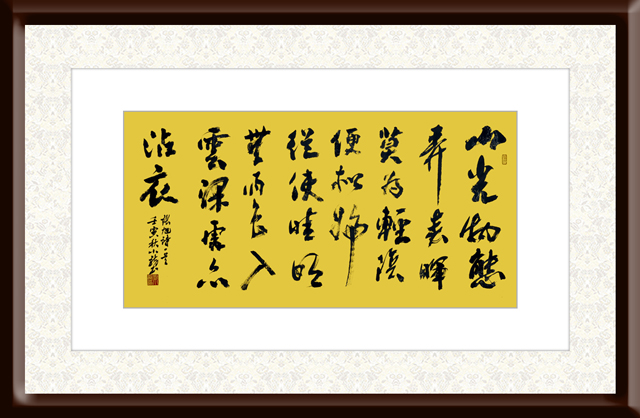 山光物態
弄春暉
莫为輕陰
便拟歸
縱使晴明
無雨色入
雲深處亦
沾衣
張旭詩一首
壬寅秋小